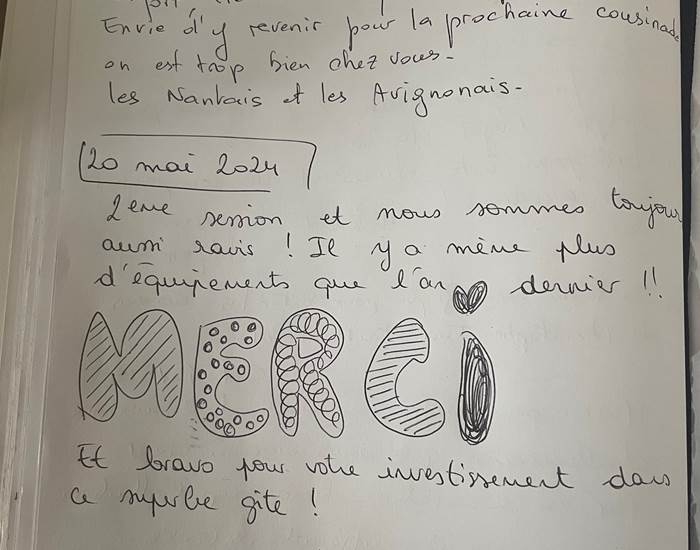 Envie d'y revenir pour la prochaine cousinade
on est trop bien chez vous-
les Nantais et les Avignonais-
20 mai 2024
2eme session et nous sommes toujour
aussi ravis ! Il y a même plus
d'équipements que l'an dernier !!
MERCI
Et bravo pour votre investissement dans
ce superbe gite !